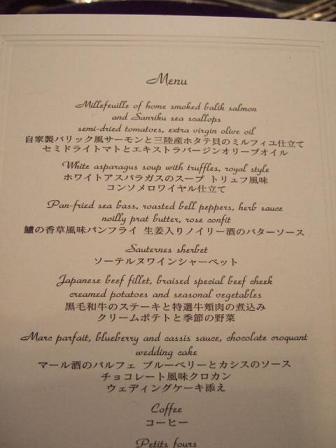 Menu
Millefeuille of home smoked balik salmon
and Sanriku sea scallops
semi-dried tomatoes, extra virgin olive oil
自家製バリック風サーモンと三陸産ホタテ貝のミルフィユ仕立て
セミドライトマトとエキストラバージンオリーブオイル
White asparagus soup with truffles, royal style
ホワイトアスパラガスのスープ トリュフ風味
コンソメロワイヤル仕立て
Pan-fried sea bass, roasted bell peppers, herb sauce
noilly prat butter, rose confit
鱸の香草風味パンフライ 生姜入りノイリー酒のバターソース
Sauternes sherbet
ソーテルヌワインシャーベット
Japanese beef fillet, braised special beef cheek
creamed potatoes and seasonal vegetables
黒毛和牛のステーキと特選牛頬肉の煮込み
クリームポテトと季節の野菜
Marc parfait, blueberry and cassis sauce, chocolate croquant
wedding cake
マール酒のパルフェ ブルーベリーとカシスのソース
チョコレート風味クロカン
ウェディングケーキ添え
Coffee
コーヒー
Petits fours